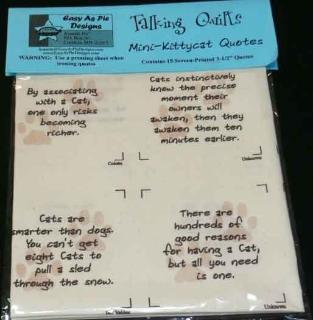 Easy As Pie
Designs
Talking Quilts
Mini-Kittycat Quotes
WARNING: Use a pressing sheet when
ironing quotes
Contains 15 Screen-Printed 3-1/2" Quotes
By associating
with a Cat,
one only risks
becoming
richer.
Colette
Cats instinctively
know the precise
moment their
owners will
awaken, then they
awaken them ten
minutes earlier.
Unknown
Cats are
smarter than dogs.
You can't get
eight Cats to
pull a sled
through the snow.
Jeff Valdez
There are
hundreds of
good reasons
for having a Cat,
but all you need
is one.
Unknown